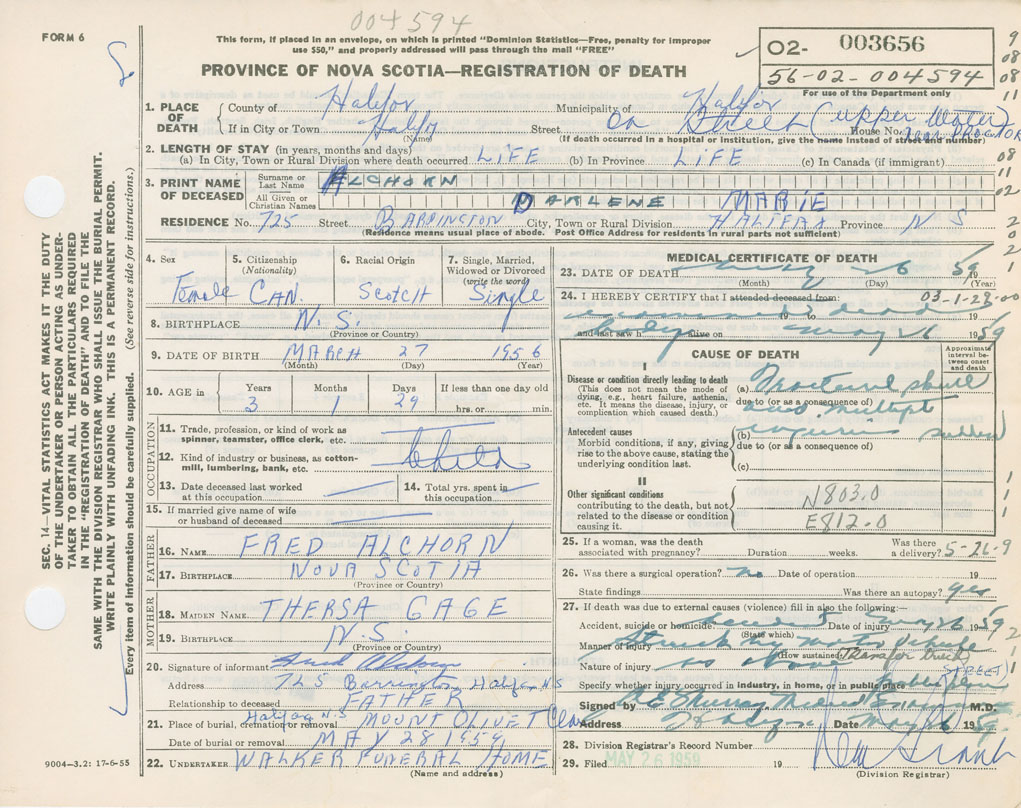 004594
FORM 6
This form, if placed in an envelope, on which is printed "Dominion Statistics—Free, penalty for improper
use $50," and properly addressed will pass through the mail "FREE"
O2- 003656
56-02-004594
For use of the Department only
PROVINCE OF NOVA SCOTIA—REGISTRATION OF DEATH
1. PLACE OF DEATH
County of Halifax Municipality of Halifax
If in City or Town Halifax Street On Street (Upper Water House No. near Proctor
(Name) (If death occurred in a hospital or institution, give the name instead of street and number)
2. LENGTH OF STAY (in years, months and days)
(a) In City, Town or Rural Division where death occurred LIFE (b) In Province LIFE (c) In Canada (if immigrant)
3. PRINT NAME OF DECEASED
Surname or Last Name ALCHORN
All Given or Christian Names DARLENE MARIE
RESIDENCE No. 725 Street BARRINGTON City, Town or Rural Division HALIFAX Province N S
(Residence means usual place of abode. Post Office Address for residents in rural parts not sufficient)
4. Sex Female
5. Citizenship (Nationality) CAN.
6. Racial Origin SCOTCH
7. Single, Married, Widowed or Divorced (write the word) Single
8. BIRTHPLACE N. S.
(Province or Country)
9. DATE OF BIRTH MARCH 27 1956
(Month) (Day) (Year)
10. AGE in Years 3 Months 1 Days 29 If less than one day old hrs. or min.
OCCUPATION
11. Trade, profession, or kind of work as spinner, teamster, office clerk, etc.
12. Kind of industry or business, as cotton-mill, lumbering, bank, etc. Child
13. Date deceased last worked at this occupation
14. Total yrs. spent in this occupation
15. If married give name of wife or husband of deceased
FATHER
16. NAME FRED ALCHORN
17. BIRTHPLACE NOVA SCOTIA
(Province or Country)
MOTHER
18. MAIDEN NAME THERSA GAGE
19. BIRTHPLACE N.S.
(Province or Country)
20. Signature of informant Fred Alchorn
Address 725 Barrington Halifax N S
Relationship to deceased FATHER
21. Place of burial, cremation or removal Halifax N.S MOUNT OLIVET
Date of burial or removal MAY 28 1959
22. UNDERTAKER WALKER FUNERAL HOME
(Name and address)
9004—3.2: 17-6-55
MEDICAL CERTIFICATE OF DEATH
23. DATE OF DEATH May 26 1959
(Month) (Day) (Year)
24. I HEREBY CERTIFY that I attended deceased from: 03-1-28-00
examined 19 dead 19
and last saw h alive on body May 26 1959
CAUSE OF DEATH
Approximate interval between onset and death
I
Disease or condition directly leading to death
(This does not mean the mode of dying, e.g., heart failure, asthenia, etc. It means the disease, injury, or complication which caused death.)
(a) Fractured skull
due to (or as a consequence of)
and multiple
Antecedent causes
Morbid conditions, if any, giving rise to the above cause, stating the underlying condition last.
(b) injuries sudden
due to (or as a consequence of)
(c)
II
Other significant conditions
contributing to the death, but not related to the disease or condition causing it.
N803.0
E812.0
25. If a woman, was the death associated with pregnancy? Duration weeks. Was there a delivery? 5-26-9
26. Was there a surgical operation? no Date of operation 19
State findings Was there an autopsy? yes
27. If death was due to external causes (violence) fill in also the following:—
Accident, suicide or homicide accident Date of injury May 26 1959
(State which)
Manner of injury Struck by motor vehicle
(How sustained) Transfer truck
Nature of injury as above
STREET
Specify whether injury occurred in industry, in home, or in public place Public place
Signed by E Murray Medical Examiner M.D.
Address Halifax Date May 26 1959
28. Division Registrar's Record Number
29. Filed MAY 26 1959 19
(Division Registrar)
SEC. 14—VITAL STATISTICS ACT MAKES IT THE DUTY
OF THE UNDERTAKER OR PERSON ACTING AS UNDER-
TAKER TO OBTAIN ALL THE PARTICULARS REQUIRED
IN THE "REGISTRATION OF DEATH" AND TO FILE THE
SAME WITH THE DIVISION REGISTRAR WHO SHALL ISSUE THE BURIAL PERMIT.
WRITE PLAINLY WITH UNFADING INK. THIS IS A PERMANENT RECORD.
Every item of information should be carefully supplied. (See reverse side for instructions.)